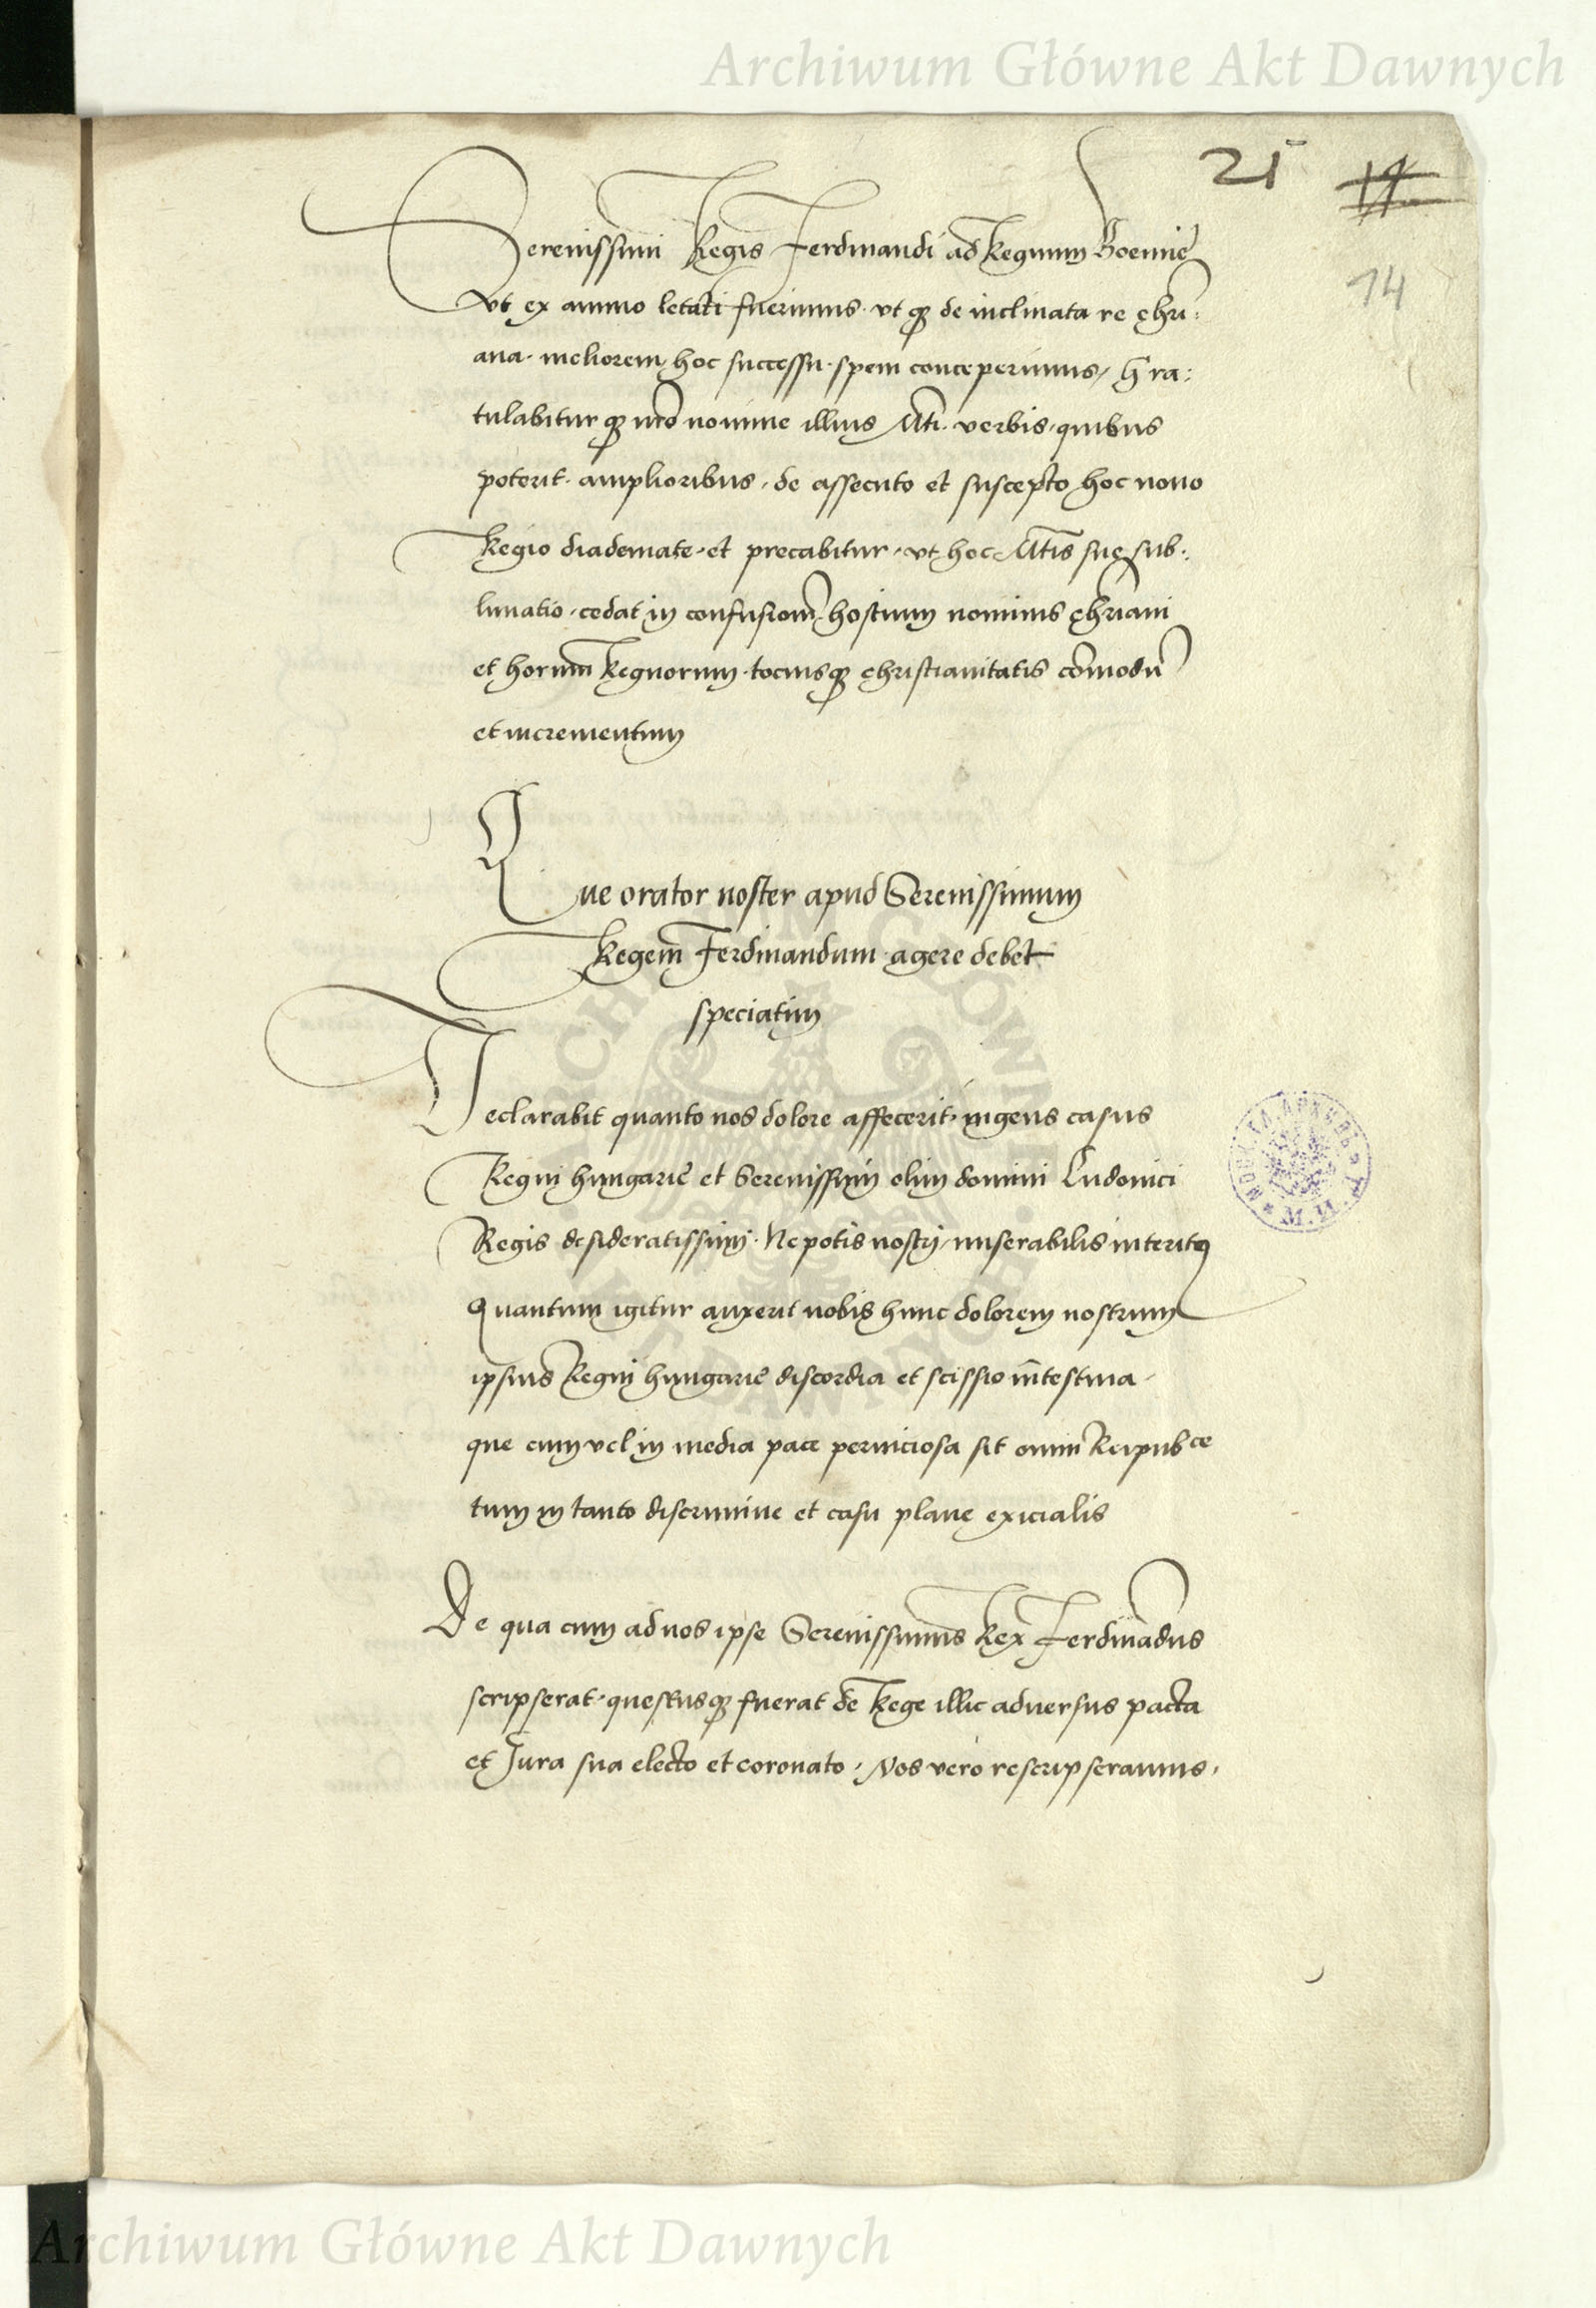 Archiwum Główne Akt Dawnych
21 14
14
Serenissimi Regis Ferdinandi ad Regnum Boemie
Vt ex animo letati fuerimus · vt qz de inclinata re chri:
ana · meliorem hoc successu · spem conceperimus, Gra:
tulabitur qz nro nomine illius Mti · verbis · quibus
poterit · amplioribus · de assecuto et suscepto hoc nouo
Regio diademate · et precabitur · vt hec Mtis sue sub:
limatio · cedat in confusionem hostium nominis chriani
et horum Regnorum · tociusqz christianitatis comodu
et incrementum
Que orator noster apud Serenissimum
Regem Ferdinandum agere debet
speciatim
Declarabit quanto nos dolore affecerit · ingens casus
Regni hungarie et Serenissimi olim domini Ludouici
Regis desideratissimi · Nepotis nostri · miserabilis interitus
Quantum igitur auxerit nobis hunc dolorem nostrum
ipsius Regni hungarie discordia et scissio intestina ·
que cum vel in media pace perniciosa sit omni Reipubce
tum in tanto discrimine et casu plane exicialis
De qua cum ad nos ipse Serenissimus Rex Ferdinadus
scripserat · questusqz fuerat de Rege illic aduersus pacta
et Jura sua electo et coronato · Nos vero rescripseramus ·
Archiwum Główne Akt Dawnych